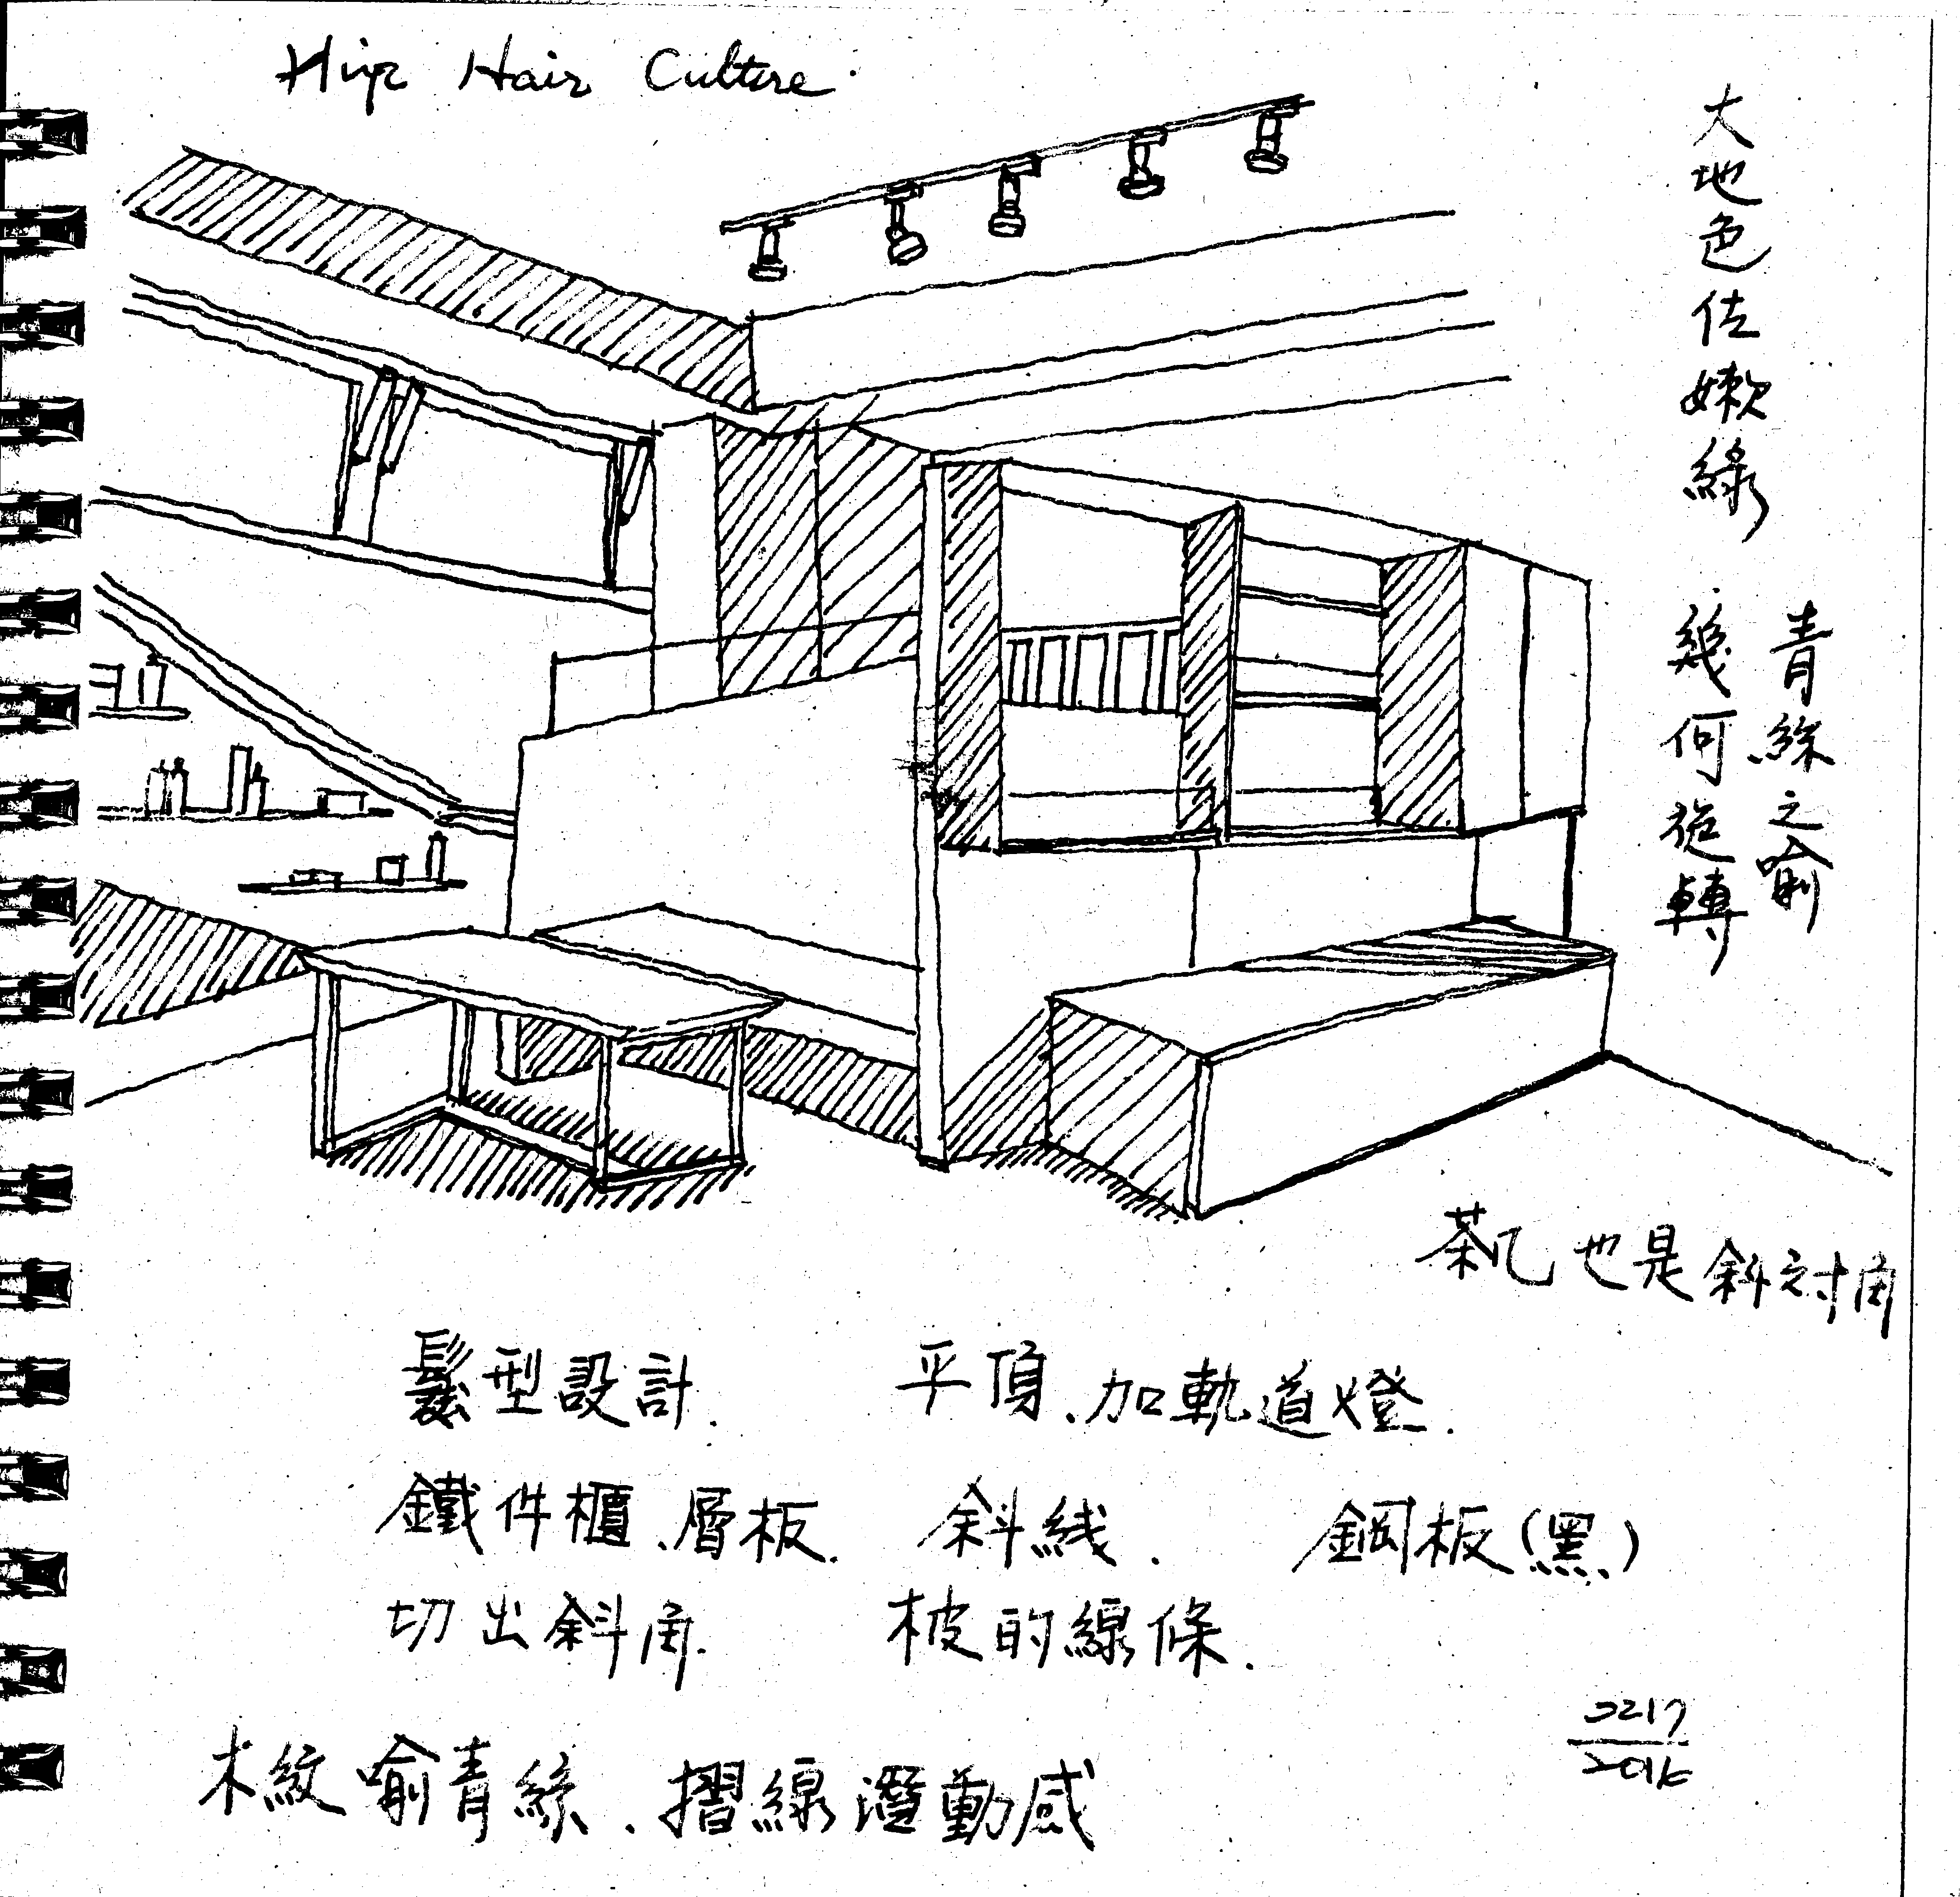 Hip Hair Culture.
大地色佐嫩綠
青絲之喻
幾何旋轉
茶几也是斜対角
髮型設計. 平頂、加軌道燈.
鐵件櫃、層板. 斜线. 鋼板(黑)
切出斜角. 木皮的線條.
木紋喻青絲、摺線動感
0217
2016